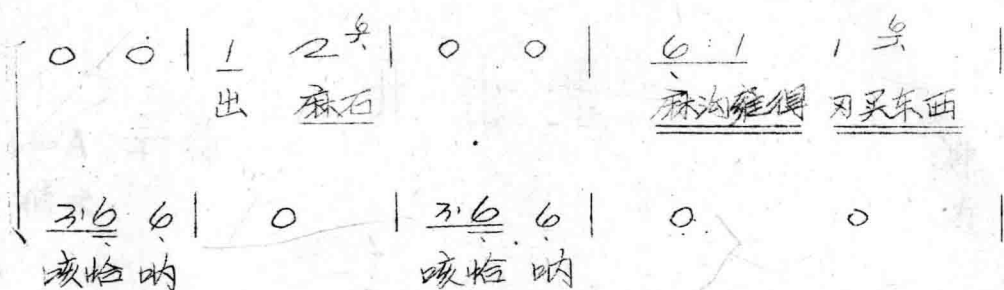 0 0 | 1 2 | 0 0 | 6 1 1 |
出 麻石 麻沟雍得 刃买东西
3·6 6 | 0 | 3·6 6 | 0 0 |
咳恰呐 咳恰呐